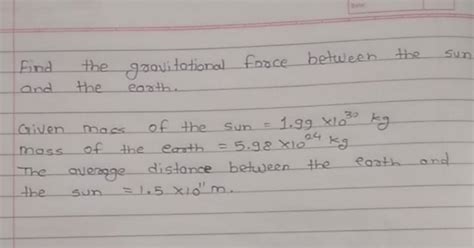 Find the gravitational force between the sun
and the earth.
Given mass of the sun = 1.99 × 10³⁰ kg
mass of the earth = 5.98 × 10²⁴ kg
The average distance between the earth and
the sun = 1.5 × 10¹¹ m.